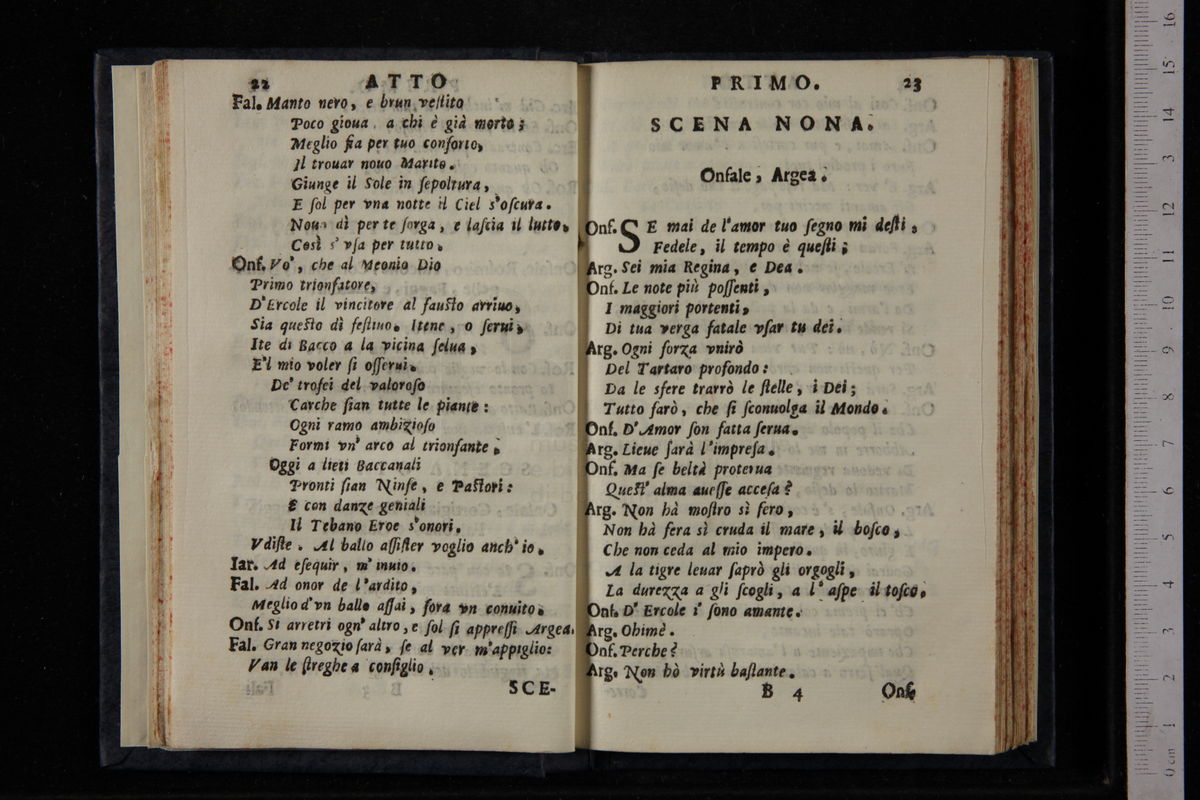 22 ATTO
Fal. Manto nero, e brun veſtito
Poco gioua, a chi è già morto;
Meglio fia per tuo conforto,
Il trouar nouo Marito.
Giunge il Sole in ſepoltura,
E ſol per vna notte il Ciel s'oſcura.
Nouo dì per te ſorga, e laſcia il lutto,
Così s' vſa per tutto.
Onf. Vo', che al Meonio Dio
Primo trionfatore,
D'Ercole il vincitore al fauſto arriuo,
Sia queſto dì feſtiuo. Itene, o ſerui,
Ite di Bacco a la vicina ſelua,
E'l mio voler ſi oſſerui.
De' trofei del valoroſo
Carche ſian tutte le piante:
Ogni ramo ambizioſo
Formi vn' arco al trionfante.
Oggi a lieti Baccanali
Pronti ſian Ninfe, e Paſtori:
E con danze geniali
Il Tebano Eroe s'onori.
Vdiſte. Al ballo aſſiſter voglio anch' io.
Iar. Ad eſequir, m' inuio.
Fal. Ad onor de l'ardito,
Meglio d'vn ballo aſſai, fora vn conuito.
Onf. Si arretri ogn' altro, e ſol ſi appreſſi Argea.
Fal. Gran negozio ſarà, ſe al ver m'appiglio:
Van le ſtreghe a conſiglio.
SCE-
PRIMO. 23
SCENA NONA.
Onfale, Argea.
Onf. SE mai de l'amor tuo ſegno mi deſti,
Fedele, il tempo è queſti;
Arg. Sei mia Regina, e Dea.
Onf. Le note più poſſenti,
I maggiori portenti,
Di tua verga fatale vſar tu dei.
Arg. Ogni forza vnirò
Del Tartaro profondo:
Da le sfere trarrò le ſtelle, i Dei;
Tutto farò, che ſi ſconuolga il Mondo.
Onf. D'Amor ſon fatta ſerua.
Arg. Lieue ſarà l'impreſa.
Onf. Ma ſe beltà proterua
Queſt' alma aueſſe acceſa?
Arg. Non hà moſtro sì fero,
Non hà fera sì cruda il mare, il boſco,
Che non ceda al mio impero.
A la tigre leuar ſaprò gli orgogli,
La durezza a gli ſcogli, a l' aſpe il toſco.
Onf. D' Ercole i' ſono amante.
Arg. Ohimè.
Onf. Perche?
Arg. Non hò virtù baſtante.
B 4 Onf.
0 cm 1 2 3 4 5 6 7 8 9 10 11 12 13 14 15 16